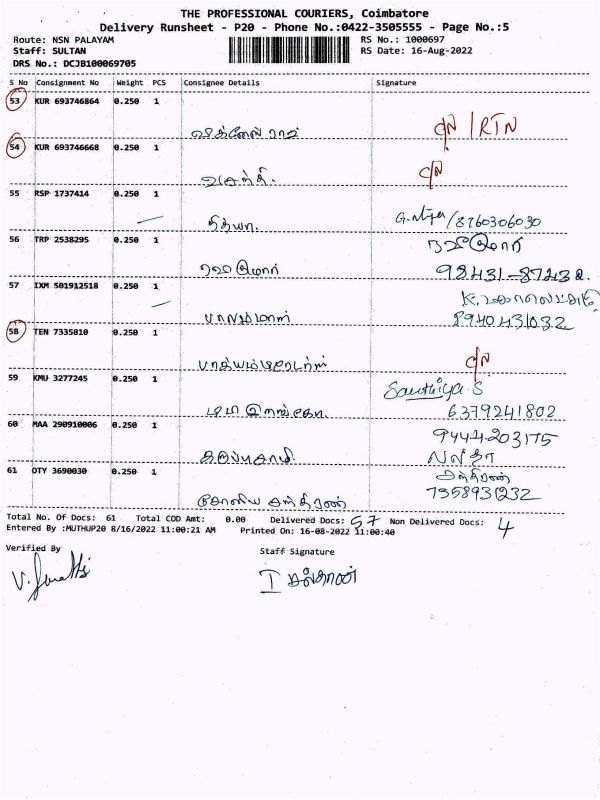 THE PROFESSIONAL COURIERS, Coimbatore
Delivery Runsheet - P20 - Phone No.:0422-3505555 - Page No.:5
Route: NSN PALAYAM RS No.: 1000697
Staff: SULTAN RS Date: 16-Aug-2022
DRS No.: DCJB100069705
S No Consignment No Weight PCS Consignee Details Signature
53 KUR 693746864 0.250 1
C/N / RTN
54 KUR 693746668 0.250 1
C/N
வசந்தி.
55 RSP 1737414 0.250 1
நித்யா. G. Nitya/8760306030
56 TRP 2538295 0.250 1
98431-87432
57 IXM 501912518 0.250 1
பாலம்மாள் 8940431032
58 TEN 7335810 0.250 1
C/N
59 KMU 3277245 0.250 1 Santhiya S
6379241802
60 MAA 290910006 0.250 1 9444203175
கருப்புசாமி
61 OTY 3690030 0.250 1 சந்திரன்
சந்திரன் 7358931232
Total No. Of Docs: 61 Total COD Amt: 0.00 Delivered Docs: 57 Non Delivered Docs: 4
Entered By :MUTHUP20 8/16/2022 11:00:21 AM Printed On: 16-08-2022 11:00:40
Verified By Staff Signature